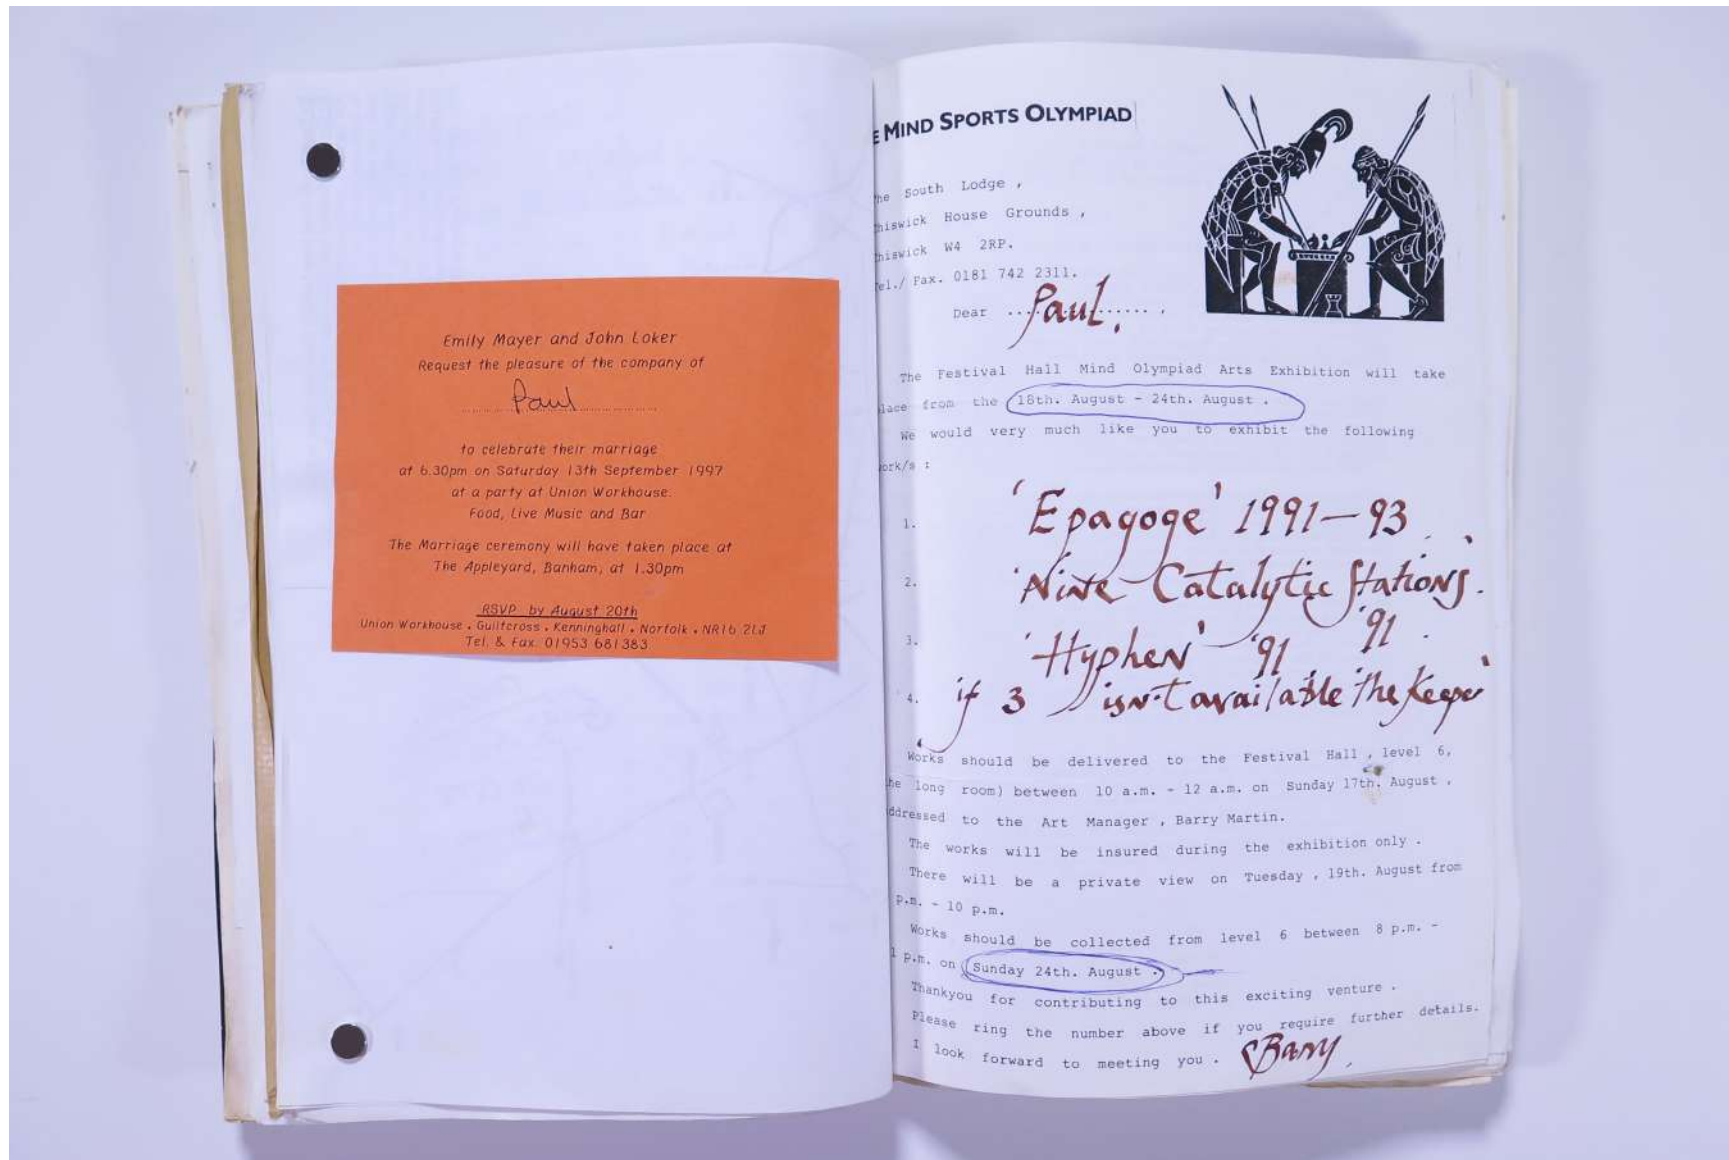 Emily Mayer and John Loker
Request the pleasure of the company of
Paul
to celebrate their marriage
at 6.30pm on Saturday 13th September 1997
at a party at Union Workhouse.
Food, Live Music and Bar
The Marriage ceremony will have taken place at
The Appleyard, Banham, at 1.30pm
RSVP by August 20th
Union Workhouse . Guiltcross . Kenninghall . Norfolk . NR16 2LJ
Tel. & Fax. 01953 681383
E MIND SPORTS OLYMPIAD
he South Lodge ,
hiswick House Grounds ,
hiswick W4 2RP.
el./ Fax. 0181 742 2311.
Dear Paul.
The Festival Hall Mind Olympiad Arts Exhibition will take
lace from the 18th. August - 24th. August .
We would very much like you to exhibit the following
ork/s :
1. 'Epagoge' 1991-93
2. 'Nine Catalytic Stations.'
'91.
3. 'Hyphen' '91
4. if 3 isn't available 'The Keeper'
Works should be delivered to the Festival Hall , level 6,
he long room) between 10 a.m. - 12 a.m. on Sunday 17th. August ,
ddressed to the Art Manager , Barry Martin.
The works will be insured during the exhibition only .
There will be a private view on Tuesday , 19th. August from
p.m. - 10 p.m.
Works should be collected from level 6 between 8 p.m. -
p.m. on Sunday 24th. August .
Thankyou for contributing to this exciting venture .
Please ring the number above if you require further details.
I look forward to meeting you . Barry